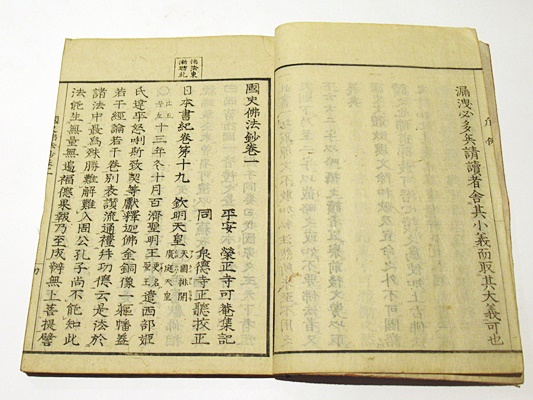 漏洩必多矣請讀者舍其小義而取其大義可也
國史佛法鈔卷一
平安 榮正寺可菴集記
同 泉德寺正聽挍正
日本書紀卷第十九 欽明天皇 天國排開廣庭天皇
十三年冬十月百濟聖明王 更名聖王 遣西部姬
氏達率怒唎斯致契等獻釋迦佛金銅像一軀幡蓋
若干經論若干卷別表讚流通禮拜功德云是法於
諸法中最爲殊勝難解難入周公孔子尚不能知此
法能生無量無邊福德果報乃至成辨無上菩提譬